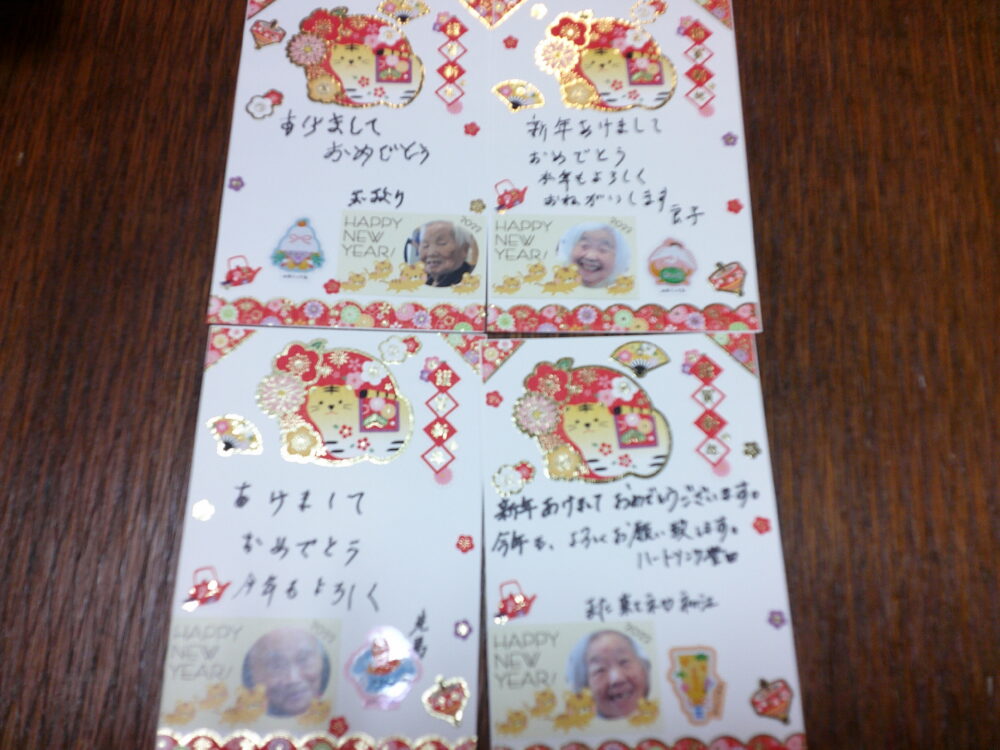 謹賀新年
あけまして
おめでとう
HAPPY
NEW
YEAR!
2022
謹賀新年
新年あけまして
おめでとう
本年もよろしく
おねがいします
良子
HAPPY
NEW
YEAR!
2022
謹賀新年
あけまして
おめでとう
今年もよろしく
HAPPY
NEW
YEAR!
2022
新年あけまして おめでとうございます。
今年も、よろしくお願い致します。
HAPPY
NEW
YEAR!
2022